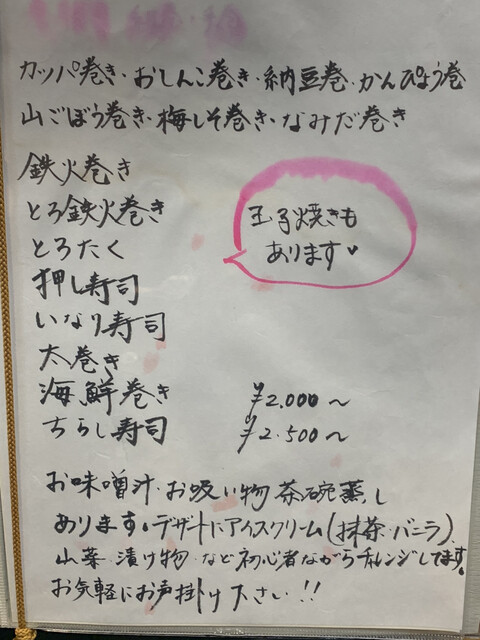 カッパ巻き・おしんこ巻き・納豆巻・かんぴょう巻
山ごぼう巻き・梅しそ巻き・なみだ巻き
鉄火巻き
とろ鉄火巻き
とろたく
押し寿司
いなり寿司
太巻き
海鮮巻き ¥2.000〜
ちらし寿司 ¥2.500〜
玉子焼きも
あります♥
お味噌汁・お吸い物 茶碗蒸し
あります。デザートにアイスクリーム(抹茶・バニラ)
山菜・漬け物・など初心者ながらチャレンジしてます。
お気軽にお声掛け下さい!!